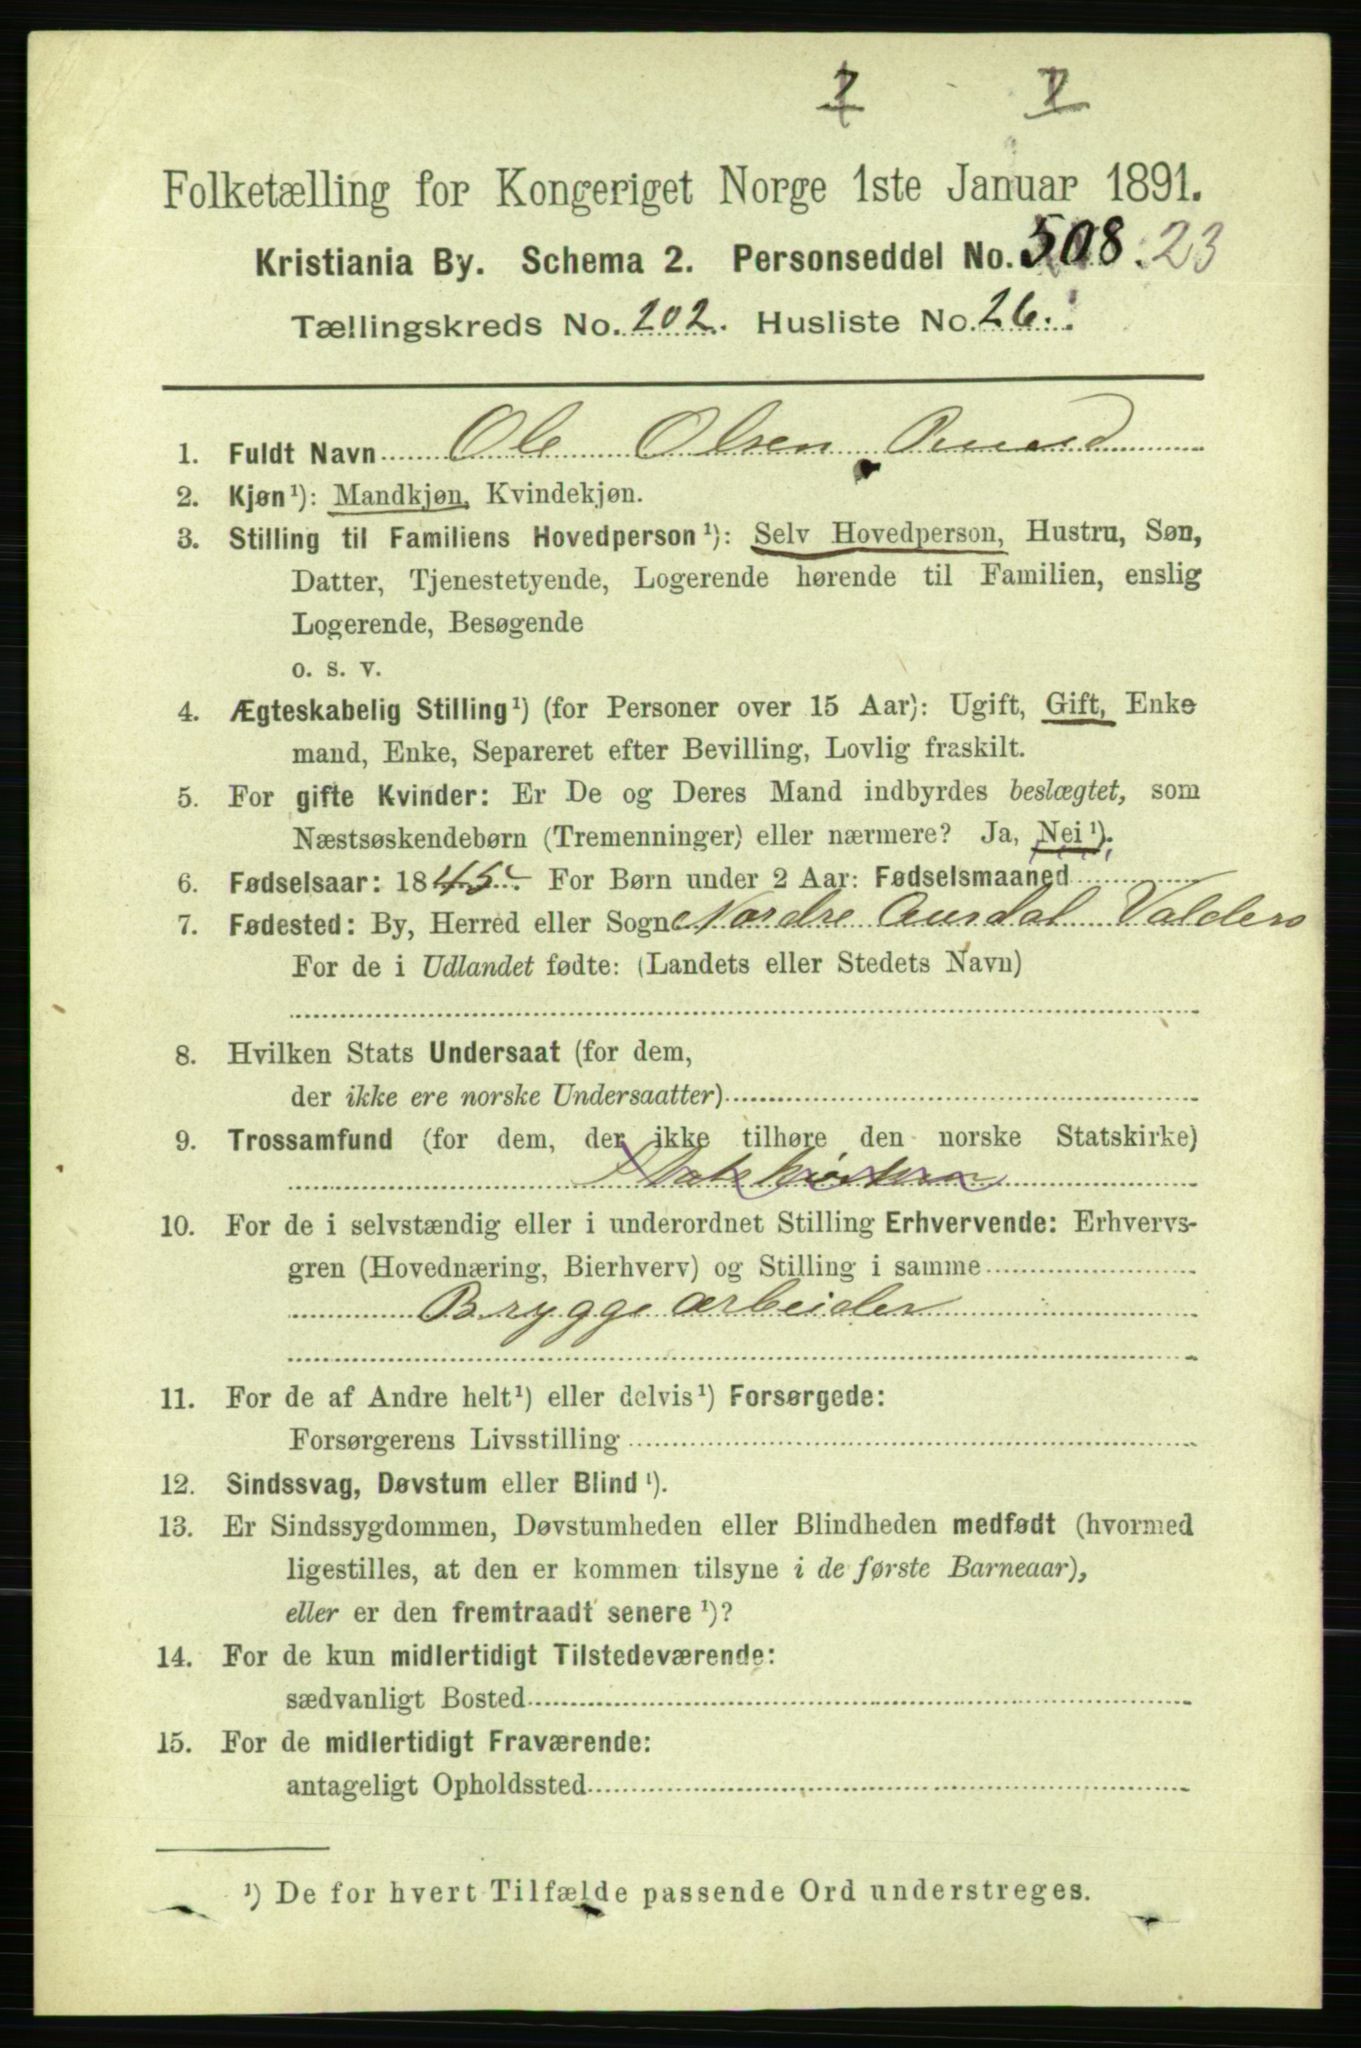 Folketælling for Kongeriget Norge 1ste Januar 1891.
Kristiania By. Schema 2. Personseddel No. 508. 23
Tællingskreds No. 202. Husliste No. 26.
1. Fuldt Navn Ole Olsen
2. Kjøn¹): Mandkjøn, Kvindekjøn.
3. Stilling til Familiens Hovedperson¹): Selv Hovedperson, Hustru, Søn,
Datter, Tjenestetyende, Logerende hørende til Familien, enslig
Logerende, Besøgende
o. s. v.
4. Ægteskabelig Stilling¹) (for Personer over 15 Aar): Ugift, Gift, Enke
mand, Enke, Separeret efter Bevilling, Lovlig fraskilt.
5. For gifte Kvinder: Er De og Deres Mand indbyrdes beslægtet, som
Næstsøskendebørn (Tremenninger) eller nærmere? Ja, Nei¹).
6. Fødselsaar: 1845. For Børn under 2 Aar: Fødselsmaaned
7. Fødested: By, Herred eller Sogn Nordre Aurdal Valders
For de i Udlandet fødte: (Landets eller Stedets Navn)
8. Hvilken Stats Undersaat (for dem,
der ikke ere norske Undersaatter)
9. Trossamfund (for dem, der ikke tilhøre den norske Statskirke)
Statskirken
10. For de i selvstændig eller i underordnet Stilling Erhvervende: Erhvervs-
gren (Hovednæring, Bierhverv) og Stilling i samme
Bryggearbeider
11. For de af Andre helt¹) eller delvis¹) Forsørgede:
Forsørgerens Livsstilling
12. Sindssvag, Døvstum eller Blind¹).
13. Er Sindssygdommen, Døvstumheden eller Blindheden medfødt (hvormed
ligestilles, at den er kommen tilsyne i de første Barneaar),
eller er den fremtraadt senere¹)?
14. For de kun midlertidigt Tilstedeværende:
sædvanligt Bosted
15. For de midlertidigt Fraværende:
antageligt Opholdssted
¹) De for hvert Tilfælde passende Ord understreges.